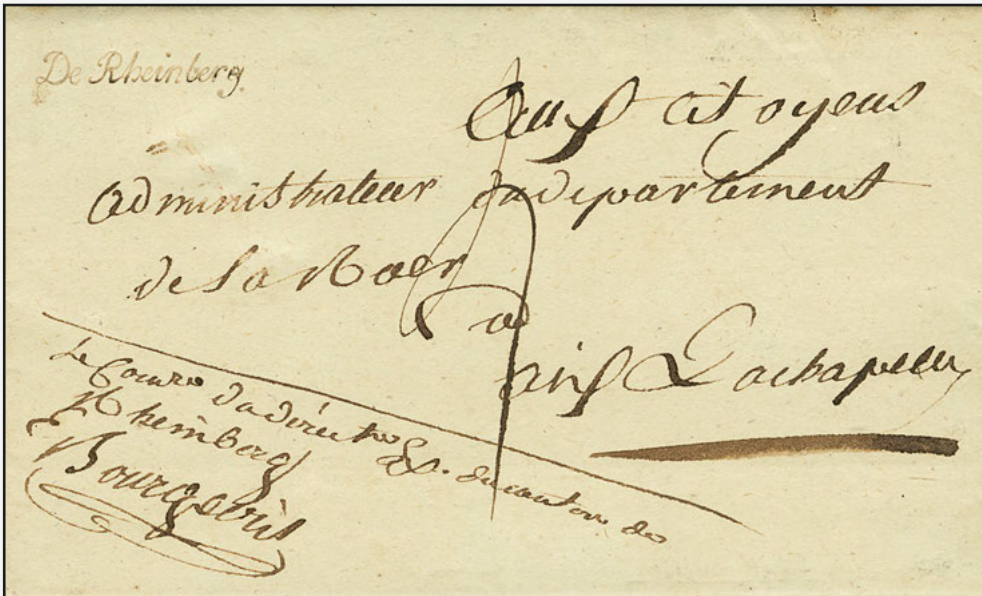 De Rheinberg.
Aux Citoyens
administrateur du departement
de la Roer
a
aix Lachapelle
Le du directoire Ex. du canton de
Rheinberg
Bourgeois